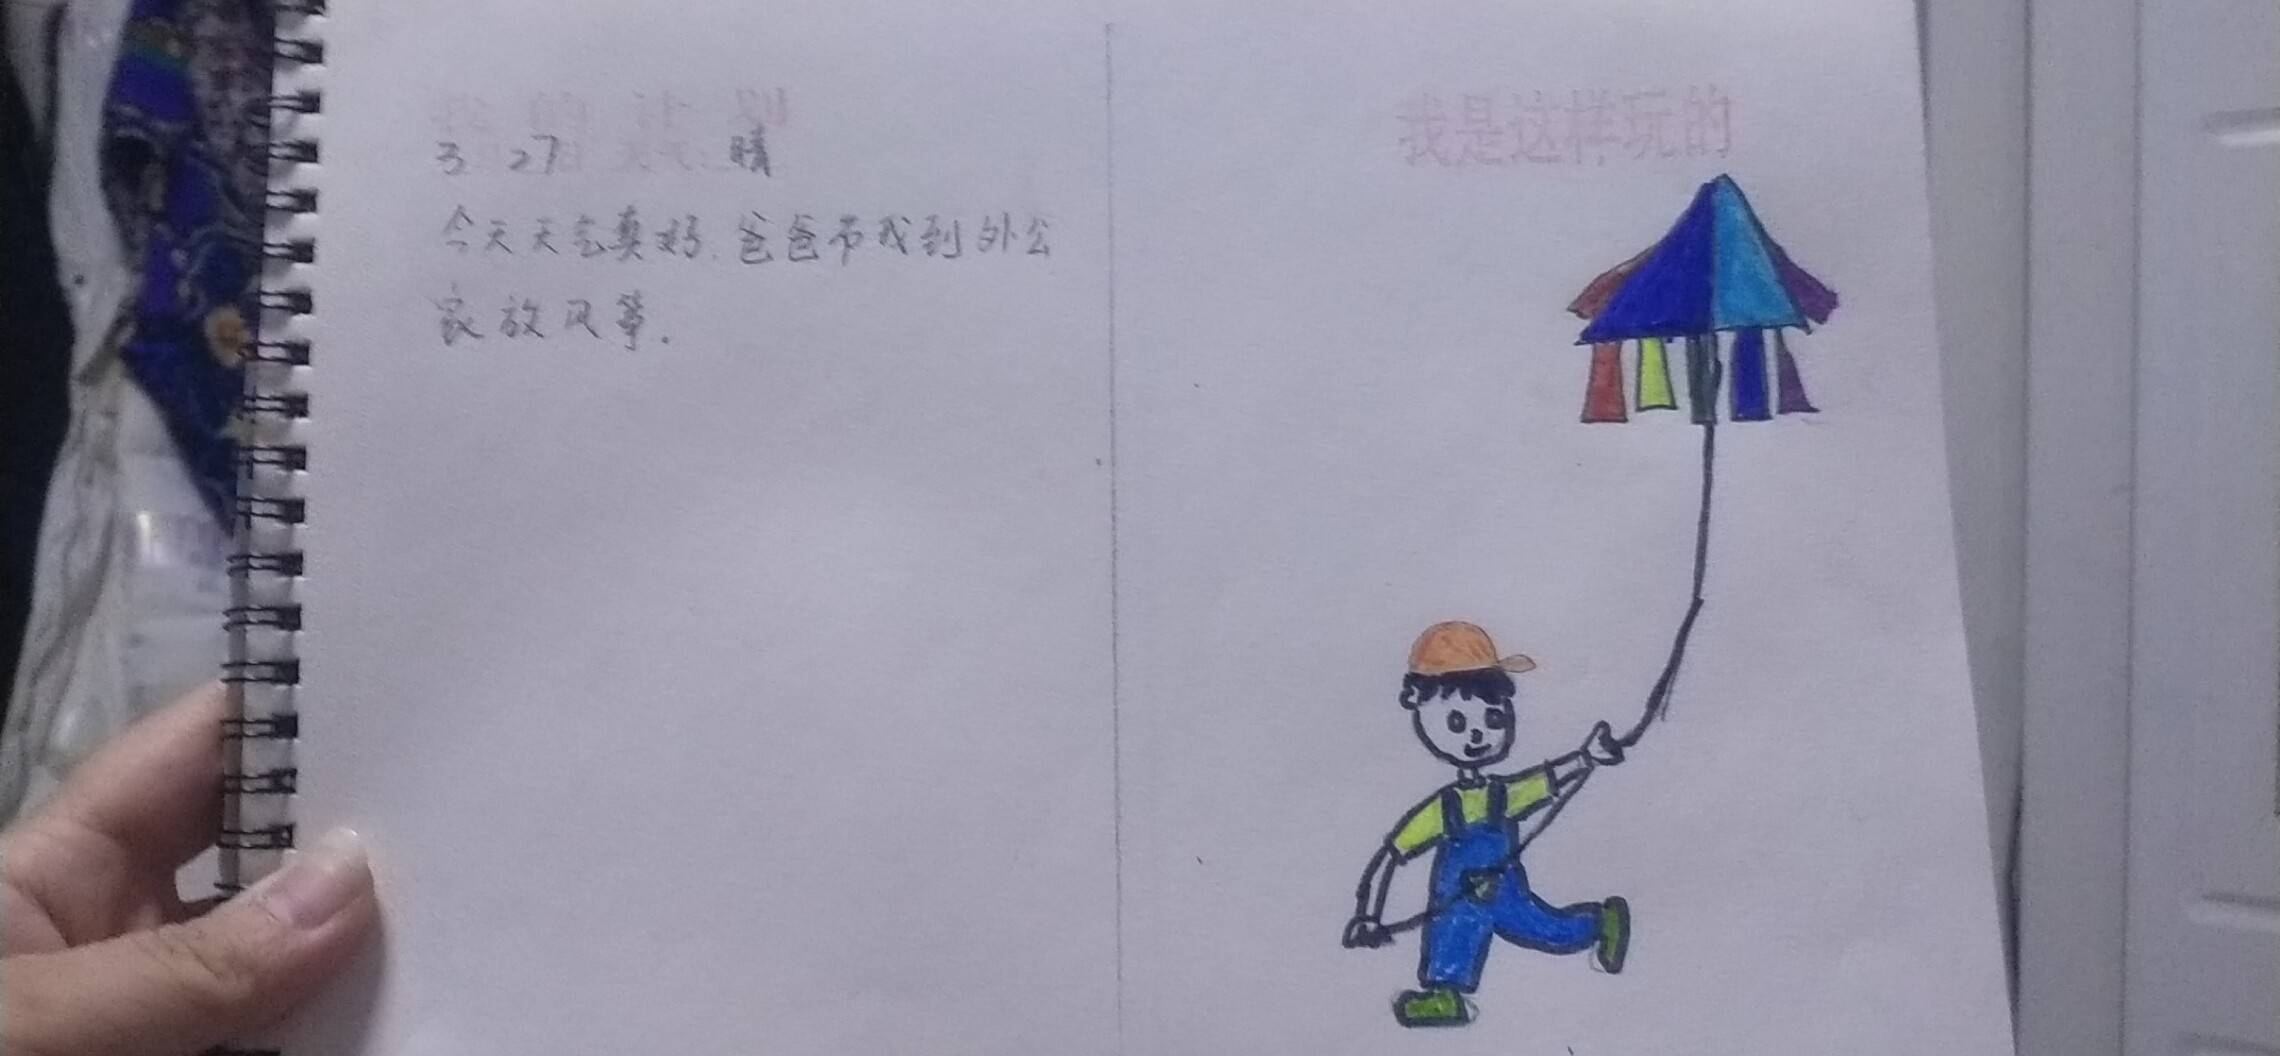 我的计划
3月27日 天气:晴
今天天气真好.爸爸带我到外公
家放风筝.
我是这样玩的